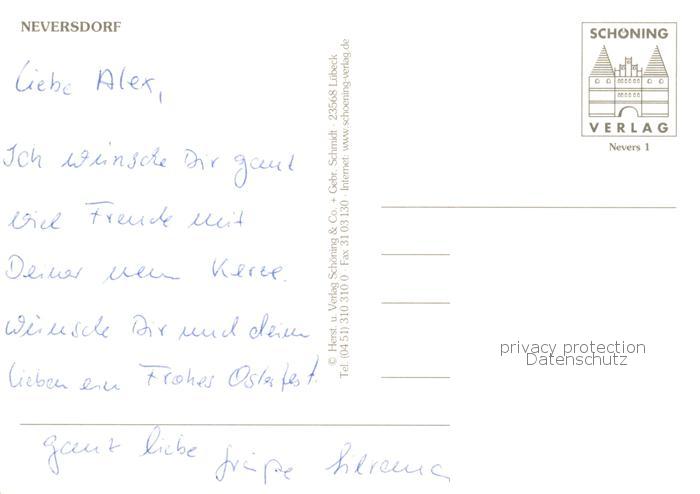 NEVERSDORF
Liebe Alex,
Ich wünsche Dir ganz
viel Freude mit
Deiner neuen Kerze.
Wünsche Dir und deinen
lieben ein Frohes Osterfest.
ganz liebe Grüße Silvana
© Herst. u. Verlag Schöning & Co. + Gebr. Schmidt · 23568 Lübeck
Tel. (04 51) 310 310 0 · Fax 31 03 130 · Internet: www.schoening-verlag.de
SCHÖNING
VERLAG
Nevers 1
privacy protection
Datenschutz